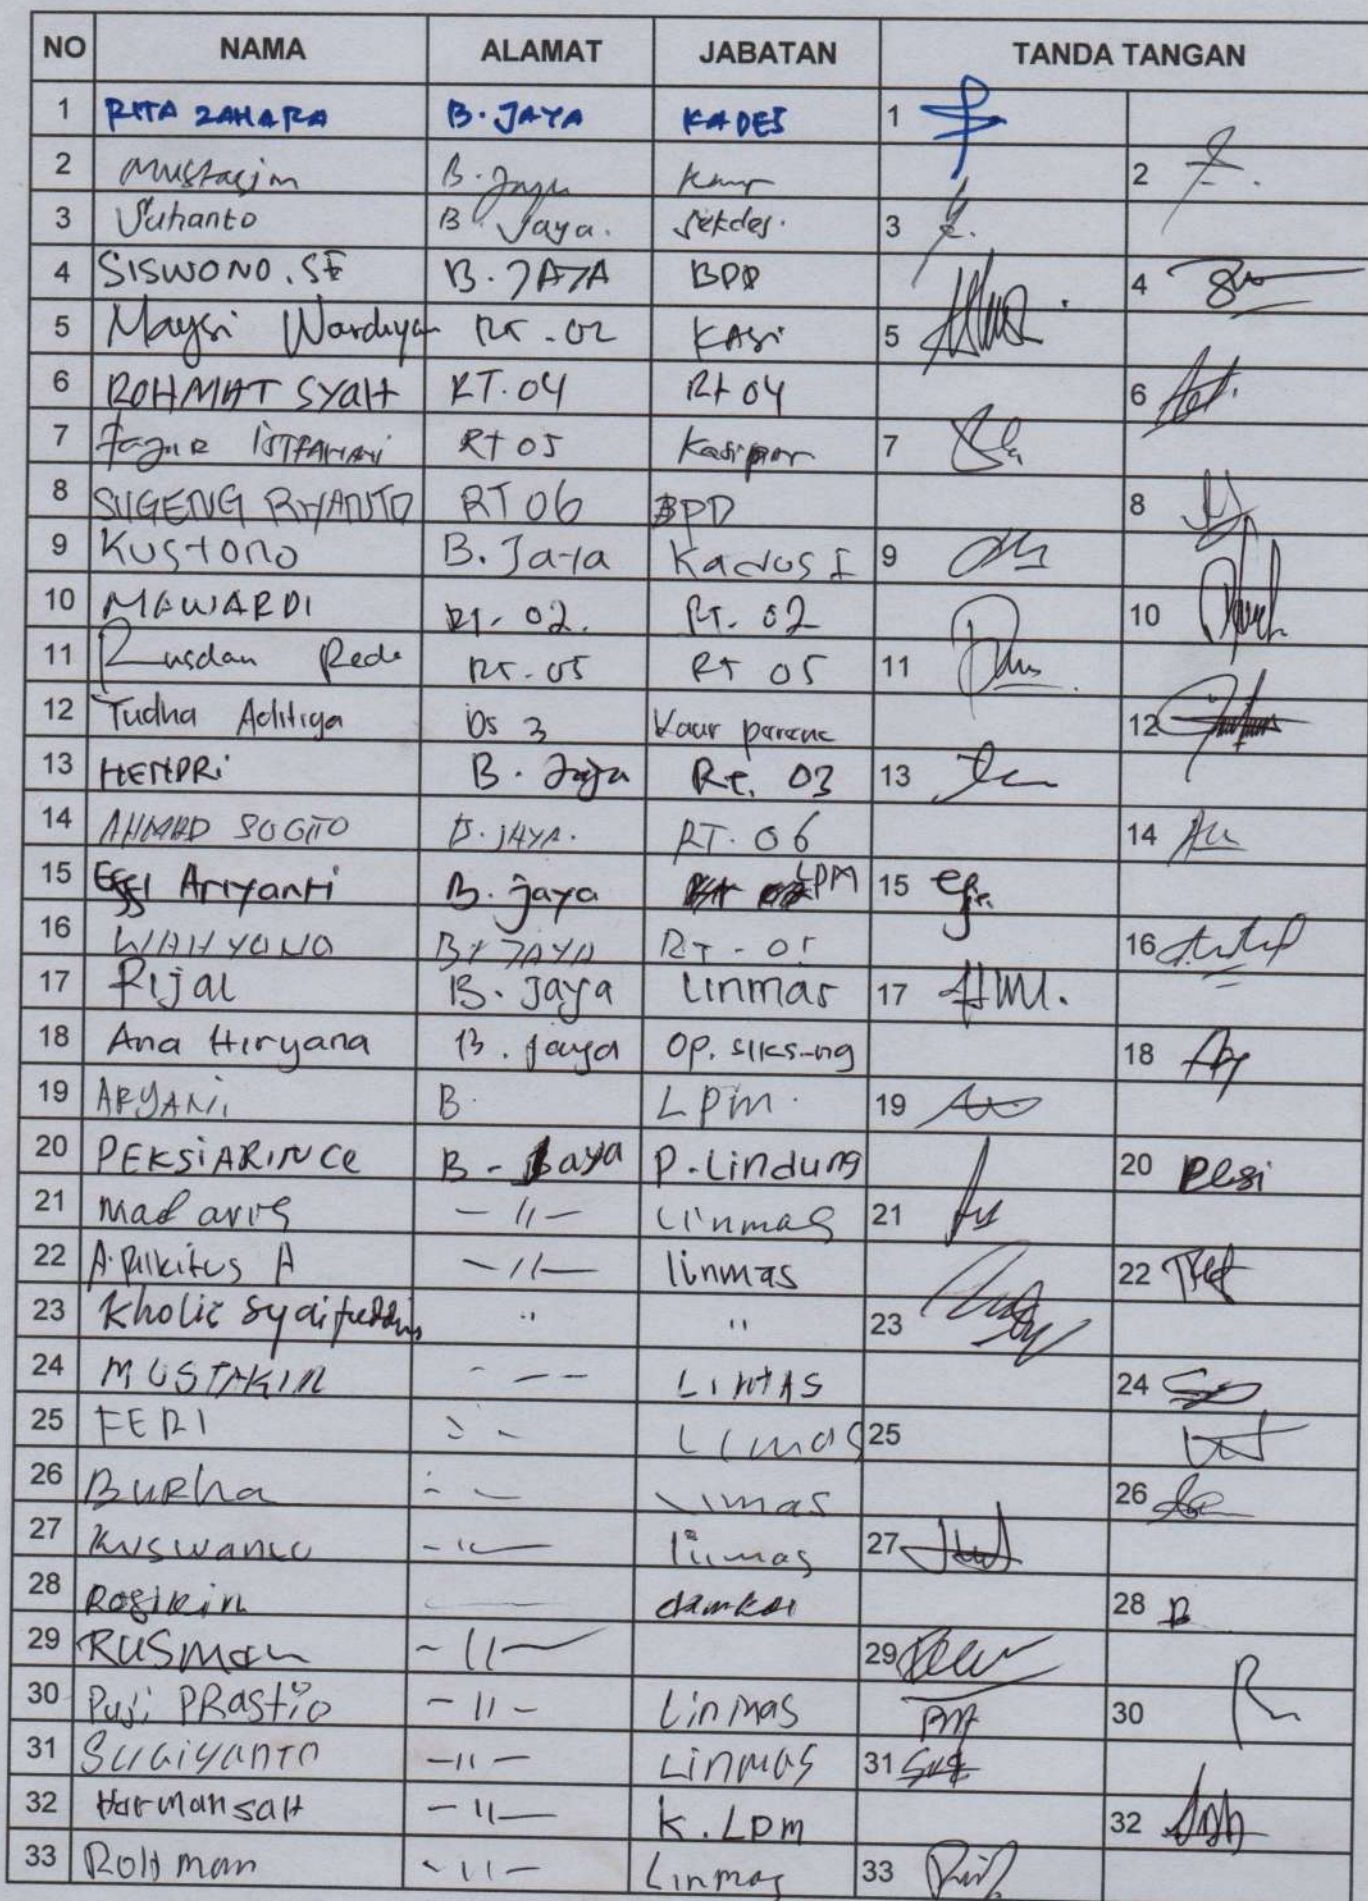 NO NAMA ALAMAT JABATAN TANDA TANGAN
1 RITA ZAHARA B. JAYA KADES 1
2 Mustaqim B. Jaya Kaur 2
3 Suhanto B Jaya. Sekdes. 3
4 SISWONO. SE B. JAYA BPD 4
5 Maysi Wardiyan RT. 02 KASi 5
6 ROHMAT SYaH RT. 04 Rt 04 6
7 RT 05 7
8 SUGENG RIYANTO RT 06 BPD 8
9 Kustono B. Jaya Kadus I 9
10 MAWARDI RT. 02. RT. 02 10
11 Rusdan Rede RT. 05 RT 05 11
12 Yudha Aditiya Ds 3 Kaur 12
13 HENDRi B. Jaya Rt. 03 13
14 AHMAD SUGITO B. JAYA. RT. 06 14
15 Eggi Ariyanti B. jaya LPM 15
16 WAHYONO B. JAYA RT - 01 16
17 Rijal B. Jaya Linmas 17
18 Ana Hiryana B. jaya OP. SIKS-ng 18
19 ARYANi B. LPM. 19
20 PEKSiARINCe B - Jaya P. Lindung 20 Peksi
21 Mad aris - 11 - Linmas 21
22 - 11 - linmas 22
23 Kholic Syaifuddin " " 23
24 MUSTAKIM - - - 24
25 FERI Limas 25
26 BURha Limas 26
27 Kuswanto - 11 - linmas 27
28 Rosikin damkar 28
29 RUSMan - 11 - 29
30 Puji PRastio - 11 - Linmas 30
31 SUGiYANTO - 11 - Linmas 31
32 Harmansah - 11 - K. LPM 32
33 Rohman - 11 - Linmas 33